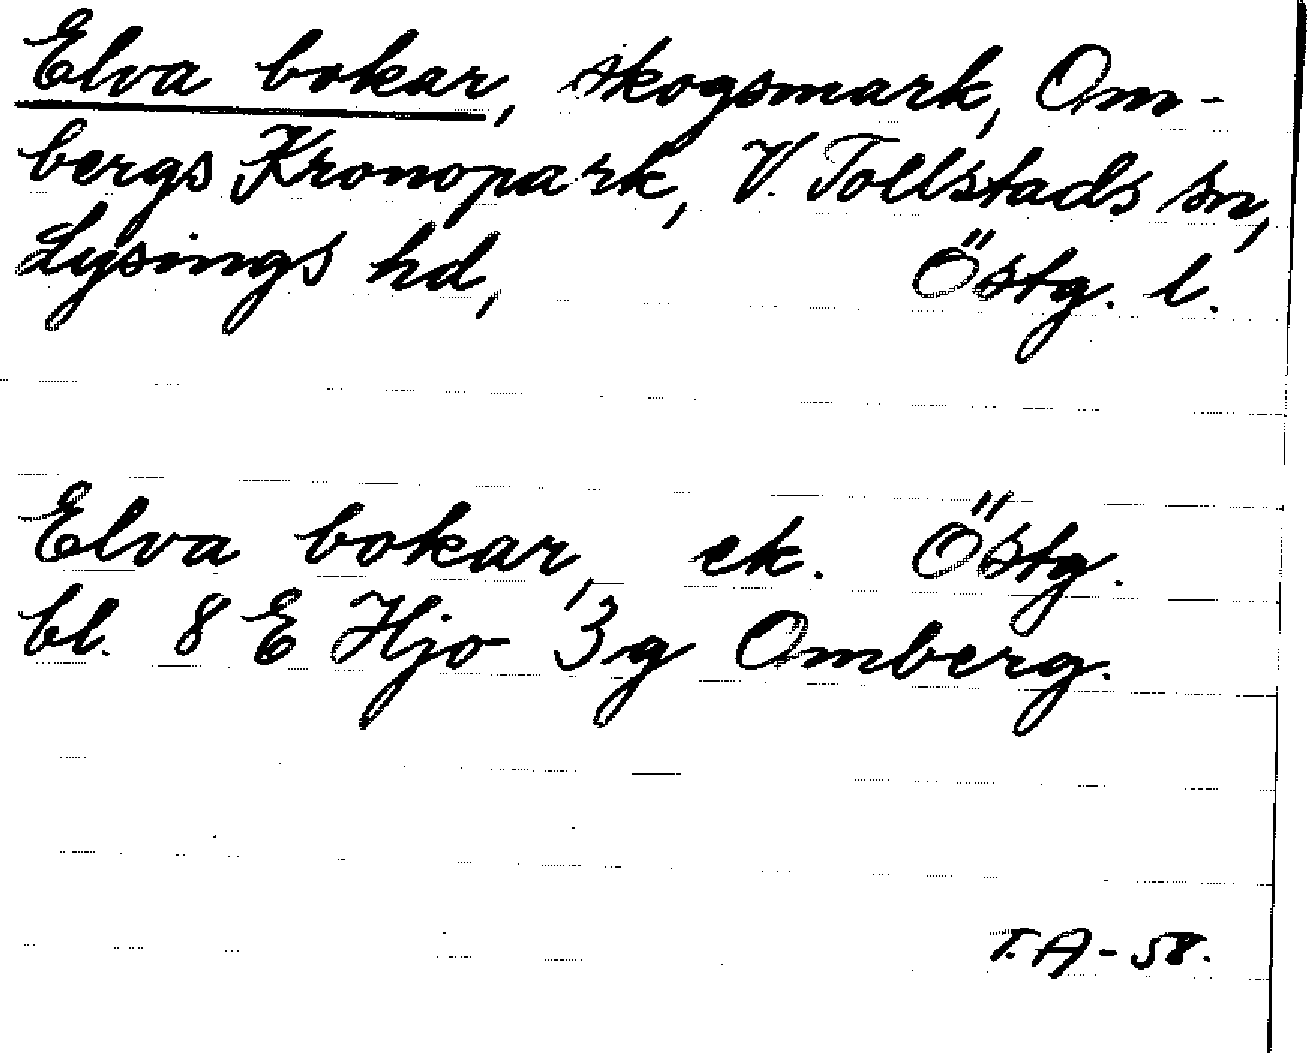 Elva bokar, skogsmark, Om-
bergs Kronopark, V. Tollstads sn,
Lysings hd, Östg. l.
Elva bokar, ek. Östg.
bl. 8 E Hjo 3g Omberg.
T.A-58.